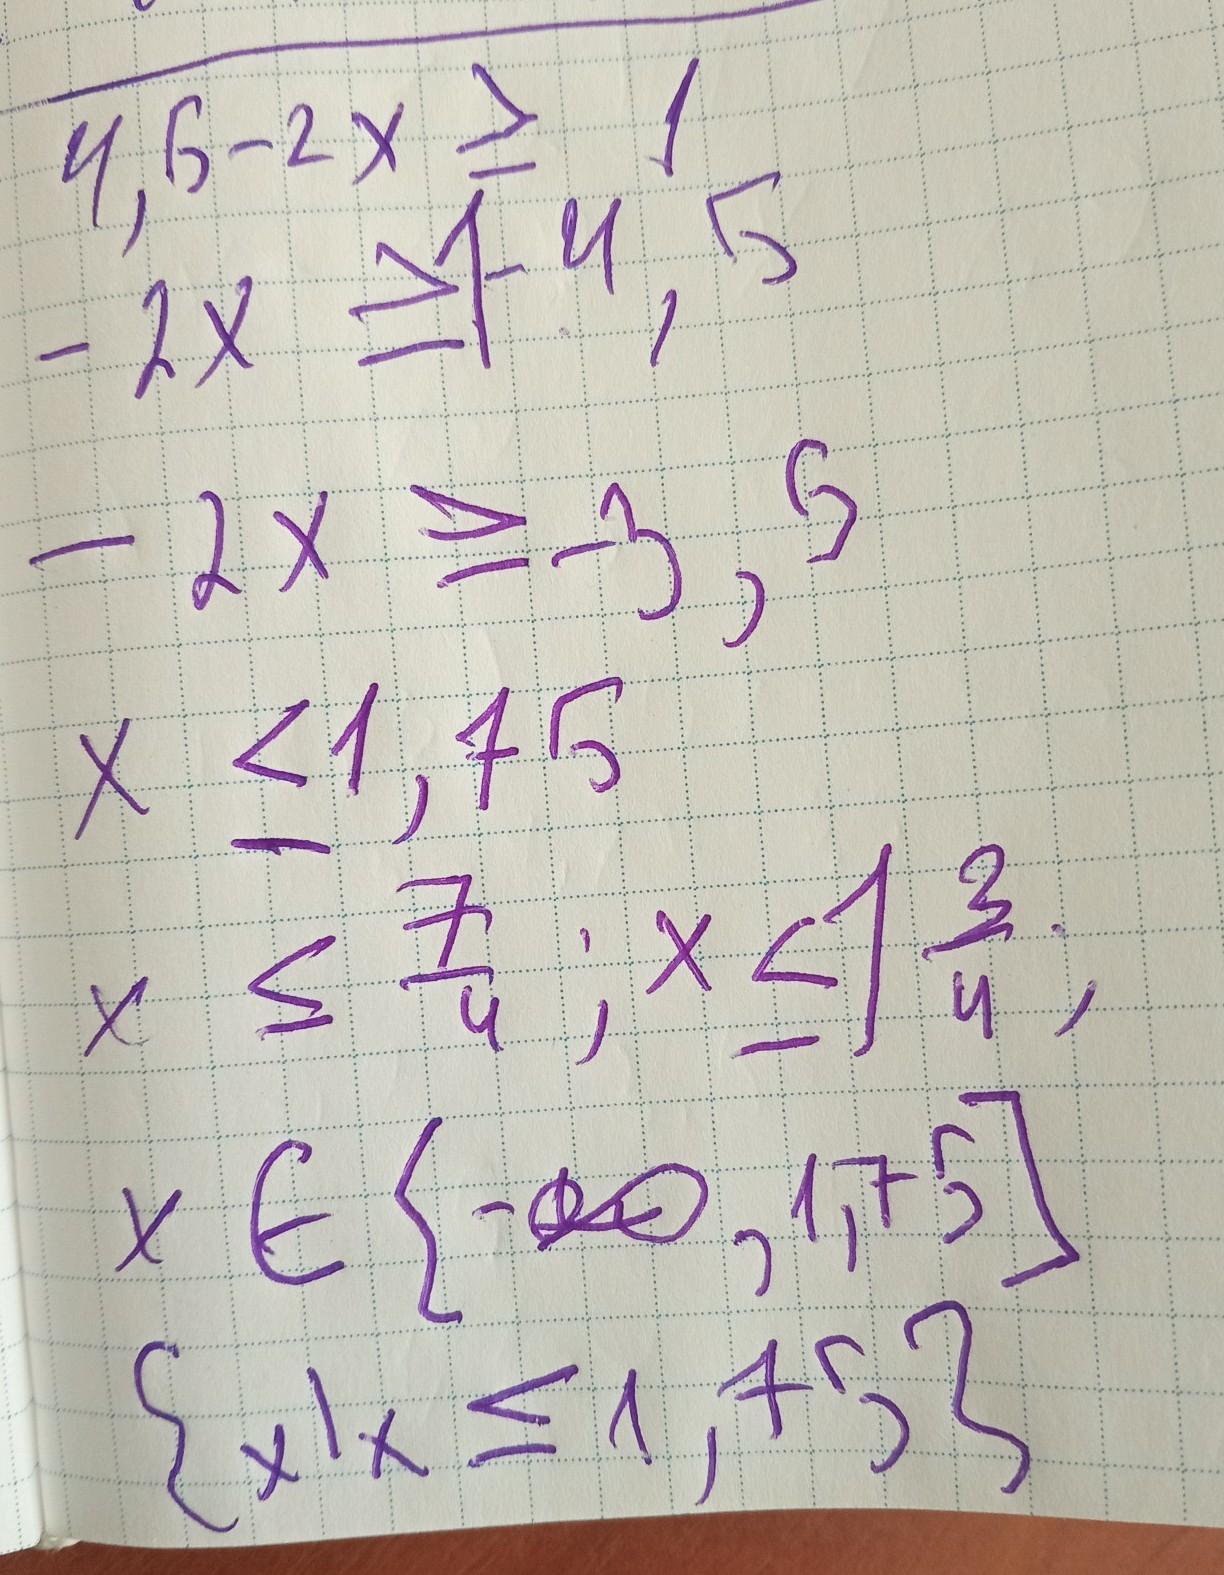 4,5-2x ≥ 1
-2x ≥ 1-4,5
-2x ≥ -3,5
x ≤ 1,75
x ≤ 7/4 ; x ≤ 1 3/4 ;
x ∈ {-∞, 1,75]
{x|x ≤ 1,75}